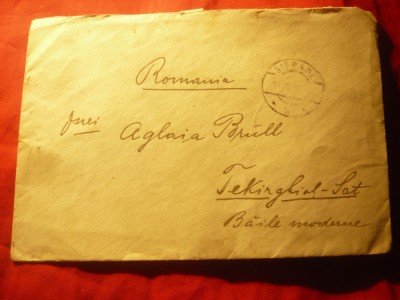 Romania
Dnei Aglaia Brüll
Tekirghiol-Sat
Băile moderne